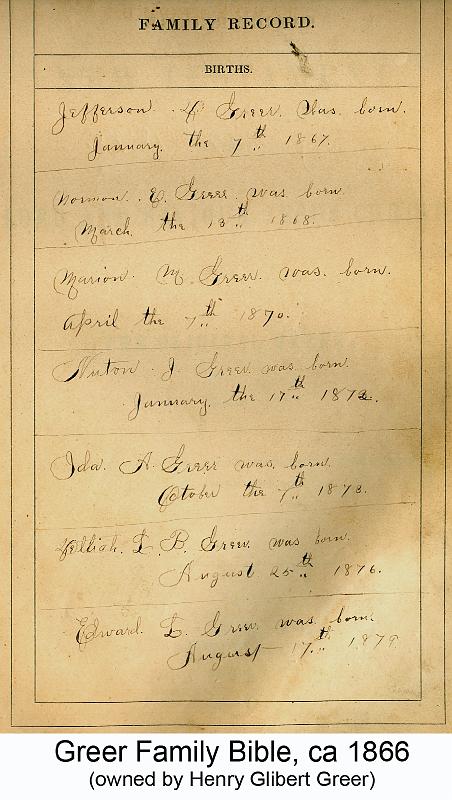 FAMILY RECORD.
BIRTHS.
Jefferson Greer. Was. born.
January. the 7th 1867.
E. Greer was born
March the 13th 1868.
Marion. M. Greer. was. born.
April the 7th 1870.
Nuton J. Greer was born.
January. the 17th 187
Ida. A. Greer was. born.
October the 7th 1873.
L. B. Greer. was born.
August 25th 1876.
Edward. L. Greer was born.
August 17th 1879
Greer Family Bible, ca 1866
(owned by Henry Glibert Greer)